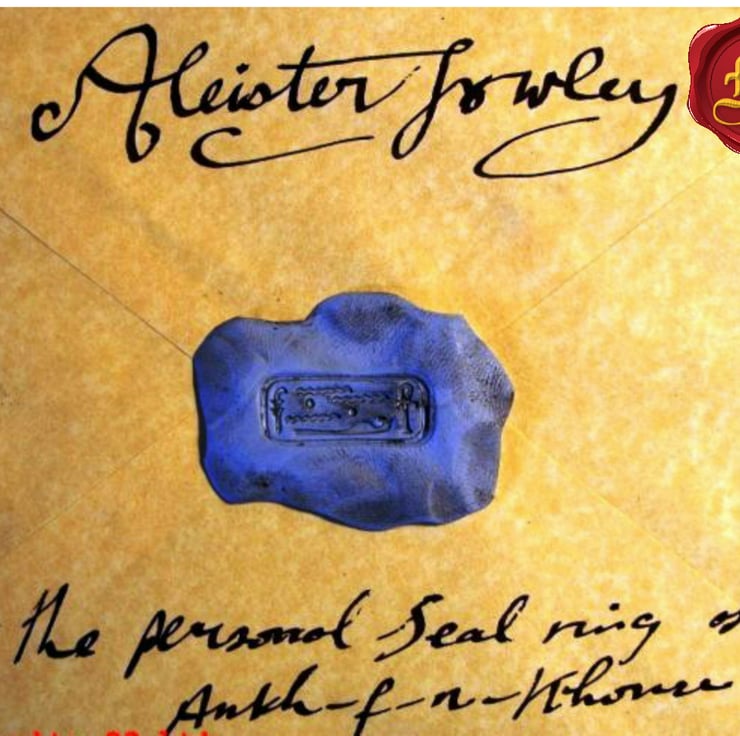 Aleister Crowley
the personal Seal ring of
Ankh-f-n-Khonsu